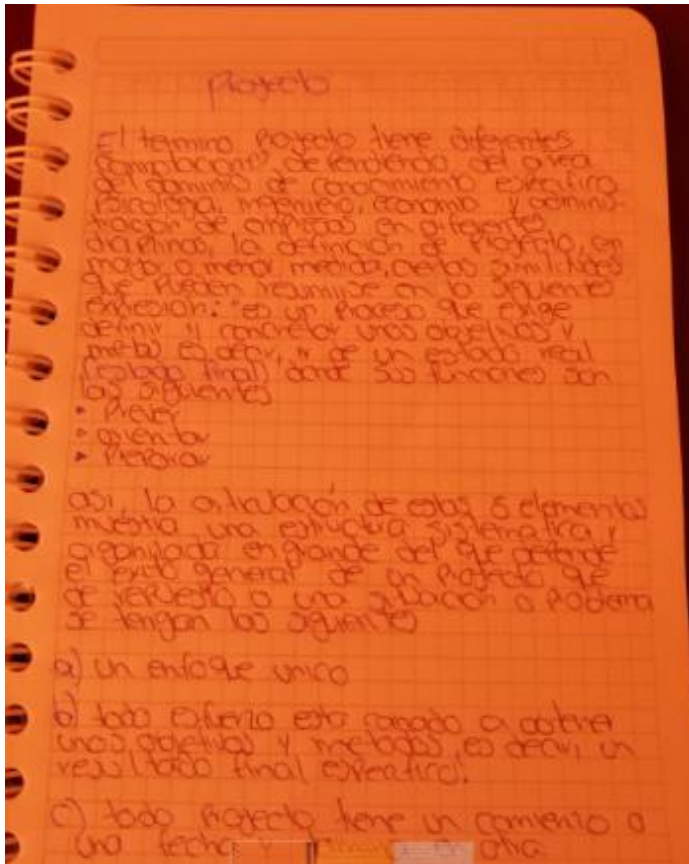 Proyecto
El termino Proyecto tiene diferentes
dependiendo del area
del dominio de conocimiento especifico
Psicologia, ingenieria, economia y adminis-
tracion de empresas en diferentes
diciplinas, la definicion de Proyecto, en
mayor o menor medida, ciertas similitudes
que pueden resumirse en la siguientes
expresion: "es un Proceso que exige
definir y concretar unos objetivos y
metas es decir, de un estado real
(estado final) donde sus funciones son
las siguientes
Prever
orientar
Preparar
asi, la articulación de estos 5 elementos
muestra una estructura sistematica y
organizada en grande del que depende
el exito general de un Proyecto que
de repuesta a una situacion o Problema
se tengan los siguientes
a) un enfoque unico
b) todo esfuerzo esta a obtener
unos objetivos y metodos, es decir, un
resultado final especifico.
c) todo Proyecto tiene un comienzo o
una fecha otra